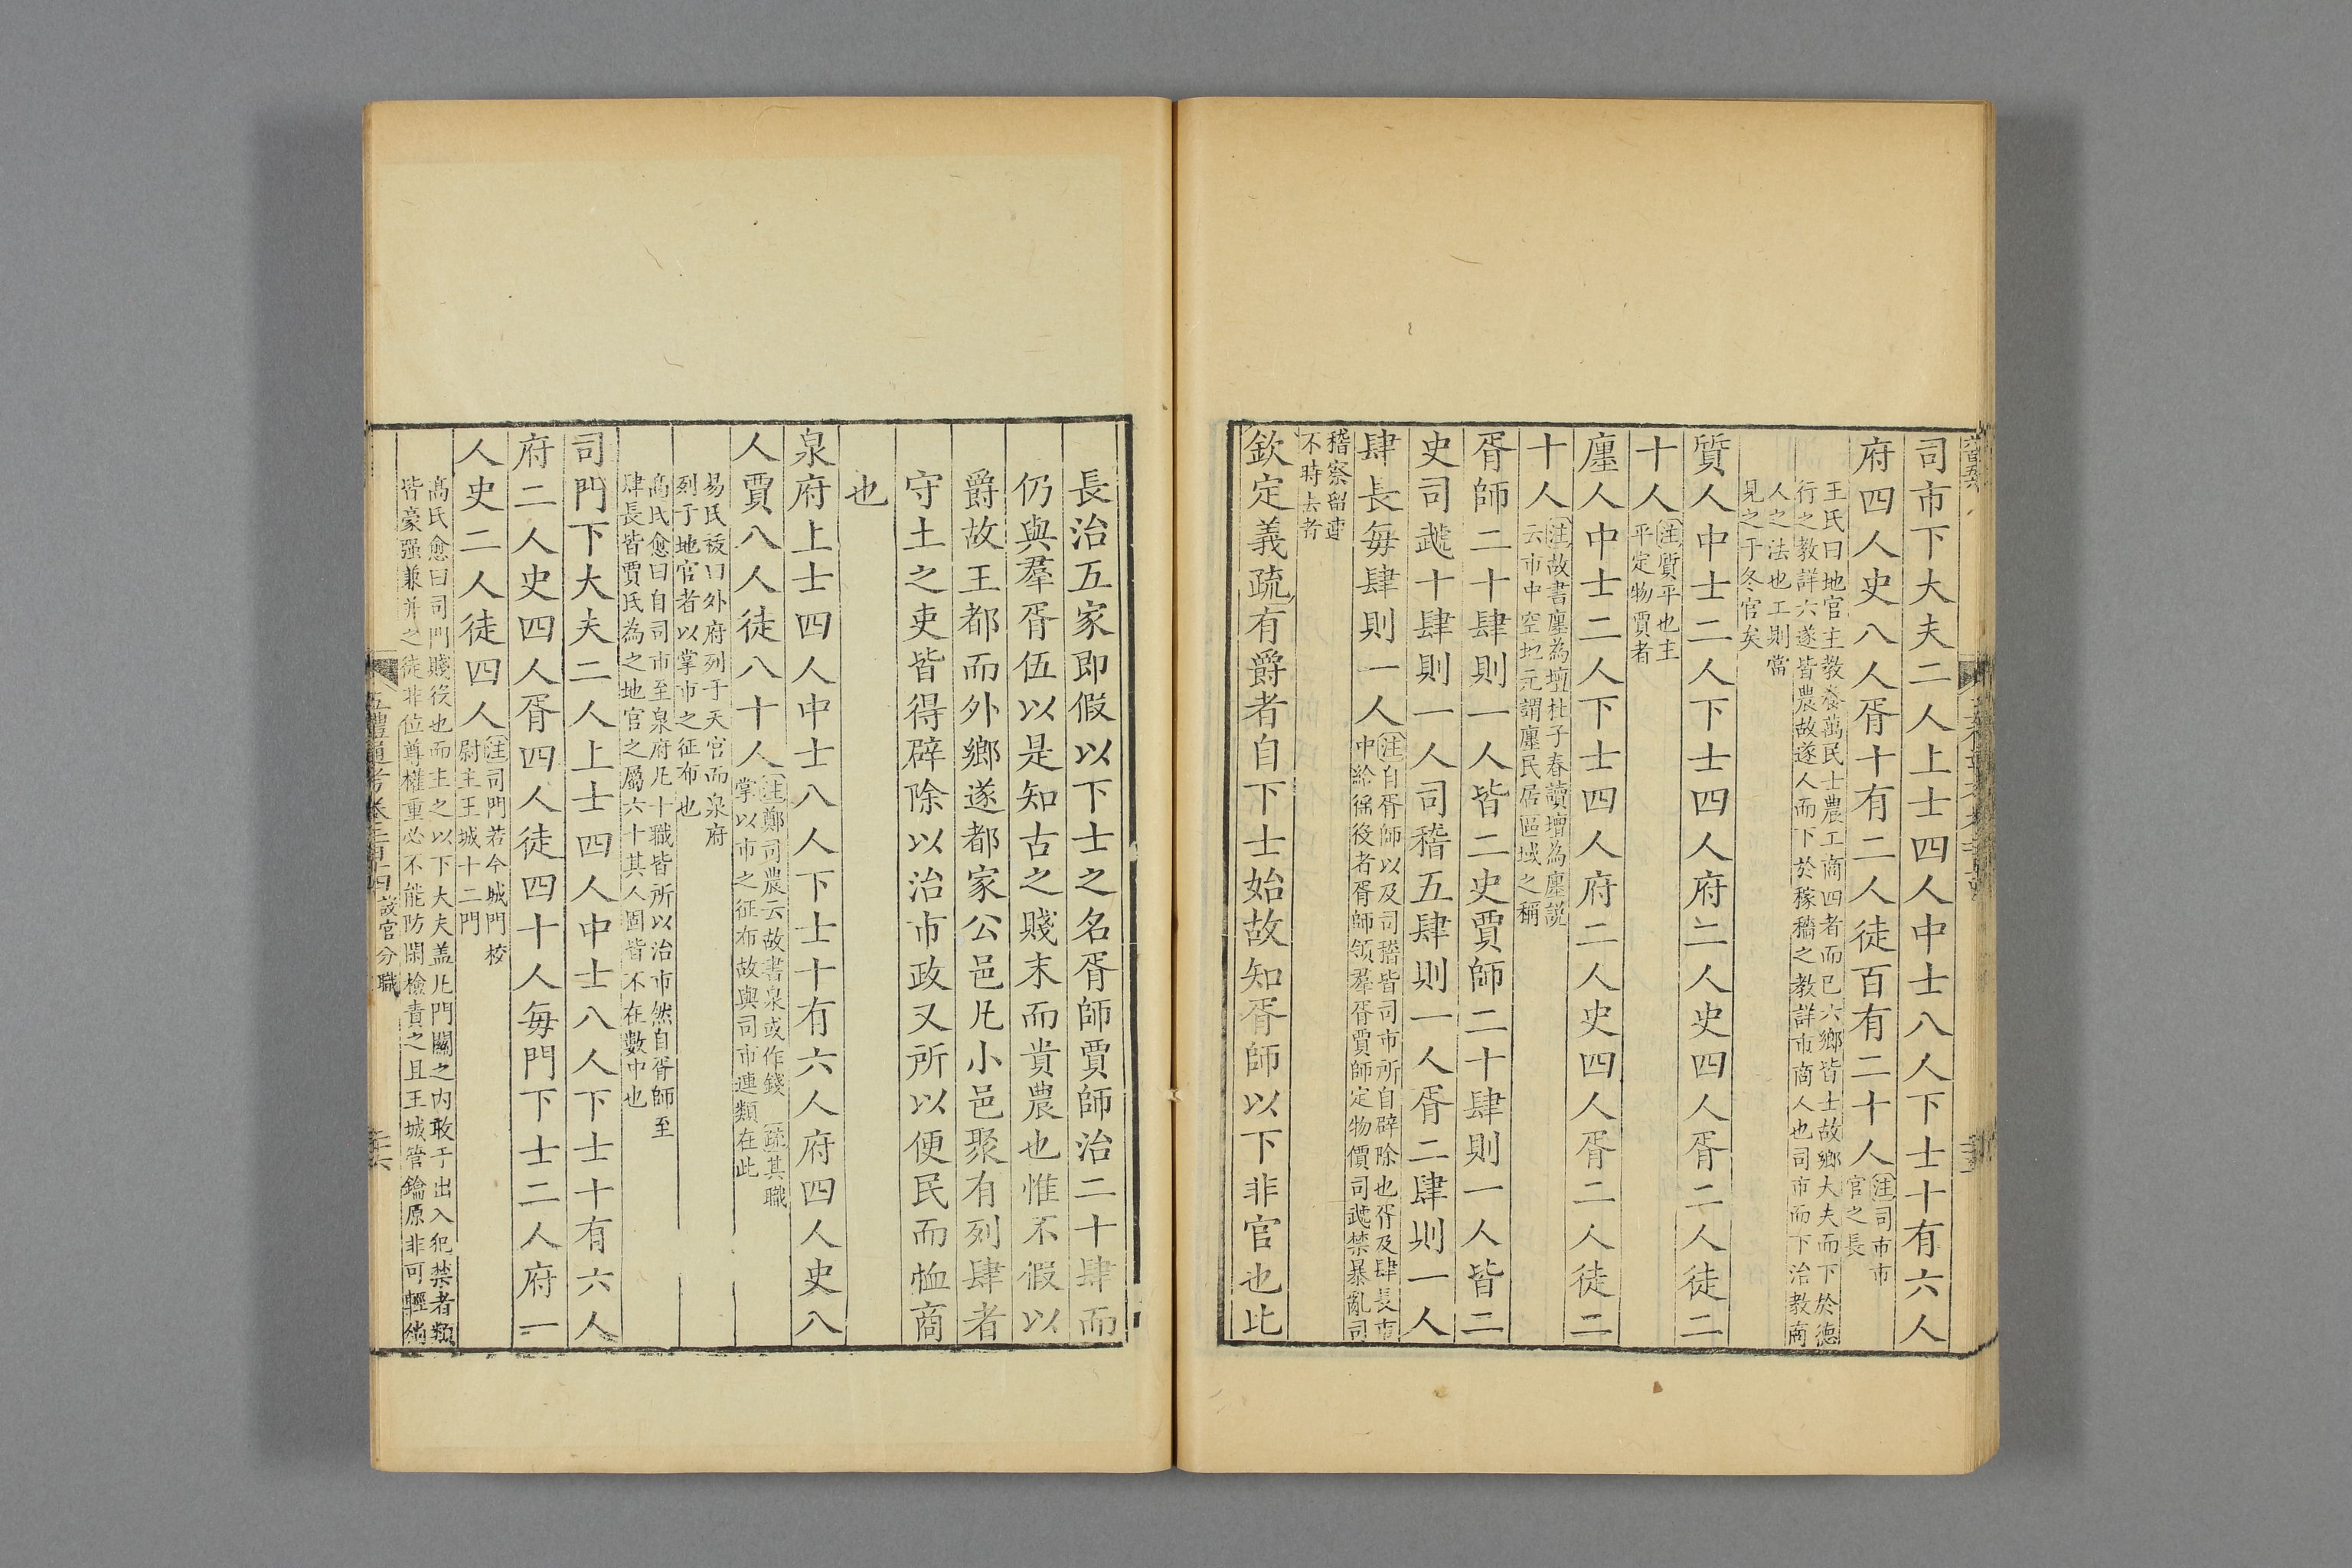 司市下大夫二人上士四人中士八人下士十有六人
府四人史八人胥十有二人徒百有二十人
注司市市
官之長
王氏曰地官主教養萬民士農工商四者而已六鄉皆士故鄉大夫而下於德
行之教詳六遂皆農故遂人而下於稼穡之教詳市商人也司市而下治教商
人之法也工則當
見之于冬官矣
質人中士二人下士四人府二人史四人胥二人徒二
十人
注質平也主
平定物賈者
廛人中士二人下士四人府二人史四人胥二人徒二
十人
注故書廛為壇杜子春讀壇為廛說
云市中空地元謂廛民居區域之稱
胥師二十肆則一人皆二史賈師二十肆則一人皆二
史司虣十肆則一人司稽五肆則一人胥二肆則一人
肆長每肆則一人
注自胥師以及司稽皆司市所自辟除也胥及肆長市
中給徭役者胥師領羣胥賈師定物價司虣禁暴亂司
稽察留連
不時去者
欽定義疏有爵者自下士始故知胥師以下非官也比
長治五家即假以下士之名胥師賈師治二十肆而
仍與羣胥伍以是知古之賤末而貴農也惟不假以
爵故王都而外鄉遂都家公邑凡小邑聚有列肆者
守土之吏皆得辟除以治市政又所以便民而恤商
也
泉府上士四人中士八人下士十有六人府四人史八
人賈八人徒八十人
注鄭司農云故書泉或作錢 疏其職
掌以市之征布故與司市連類在此
易氏祓曰外府列于天官而泉府
列于地官者以掌市之征布也
高氏愈曰自司市至泉府凡十職皆所以治市然自胥師至
肆長皆賈氏為之地官之屬六十其人固皆不在數中也
司門下大夫二人上士四人中士八人下士十有六人
府二人史四人胥四人徒四十人每門下士二人府一
人史二人徒四人
注司門若今城門校
尉主王城十二門
高氏愈曰司門賤役也而主之以下大夫蓋凡門關之內敢于出入犯禁者類
皆豪强兼并之徒非位尊權重必不能防閑檢責之且王城管鑰原非可輕綰
五禮通考卷二百十四 設官分職